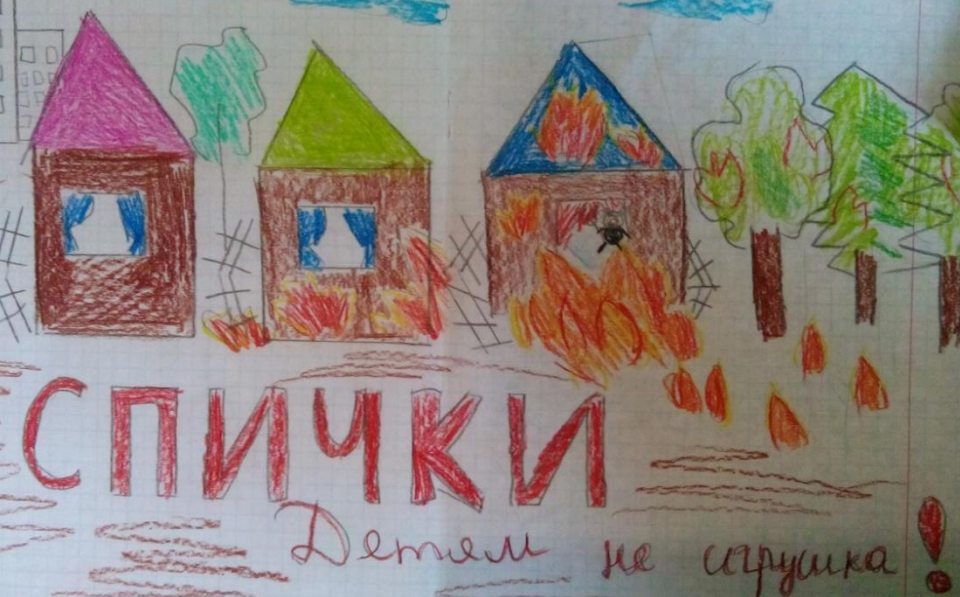 СПИЧКИ
Детям не игрушка!